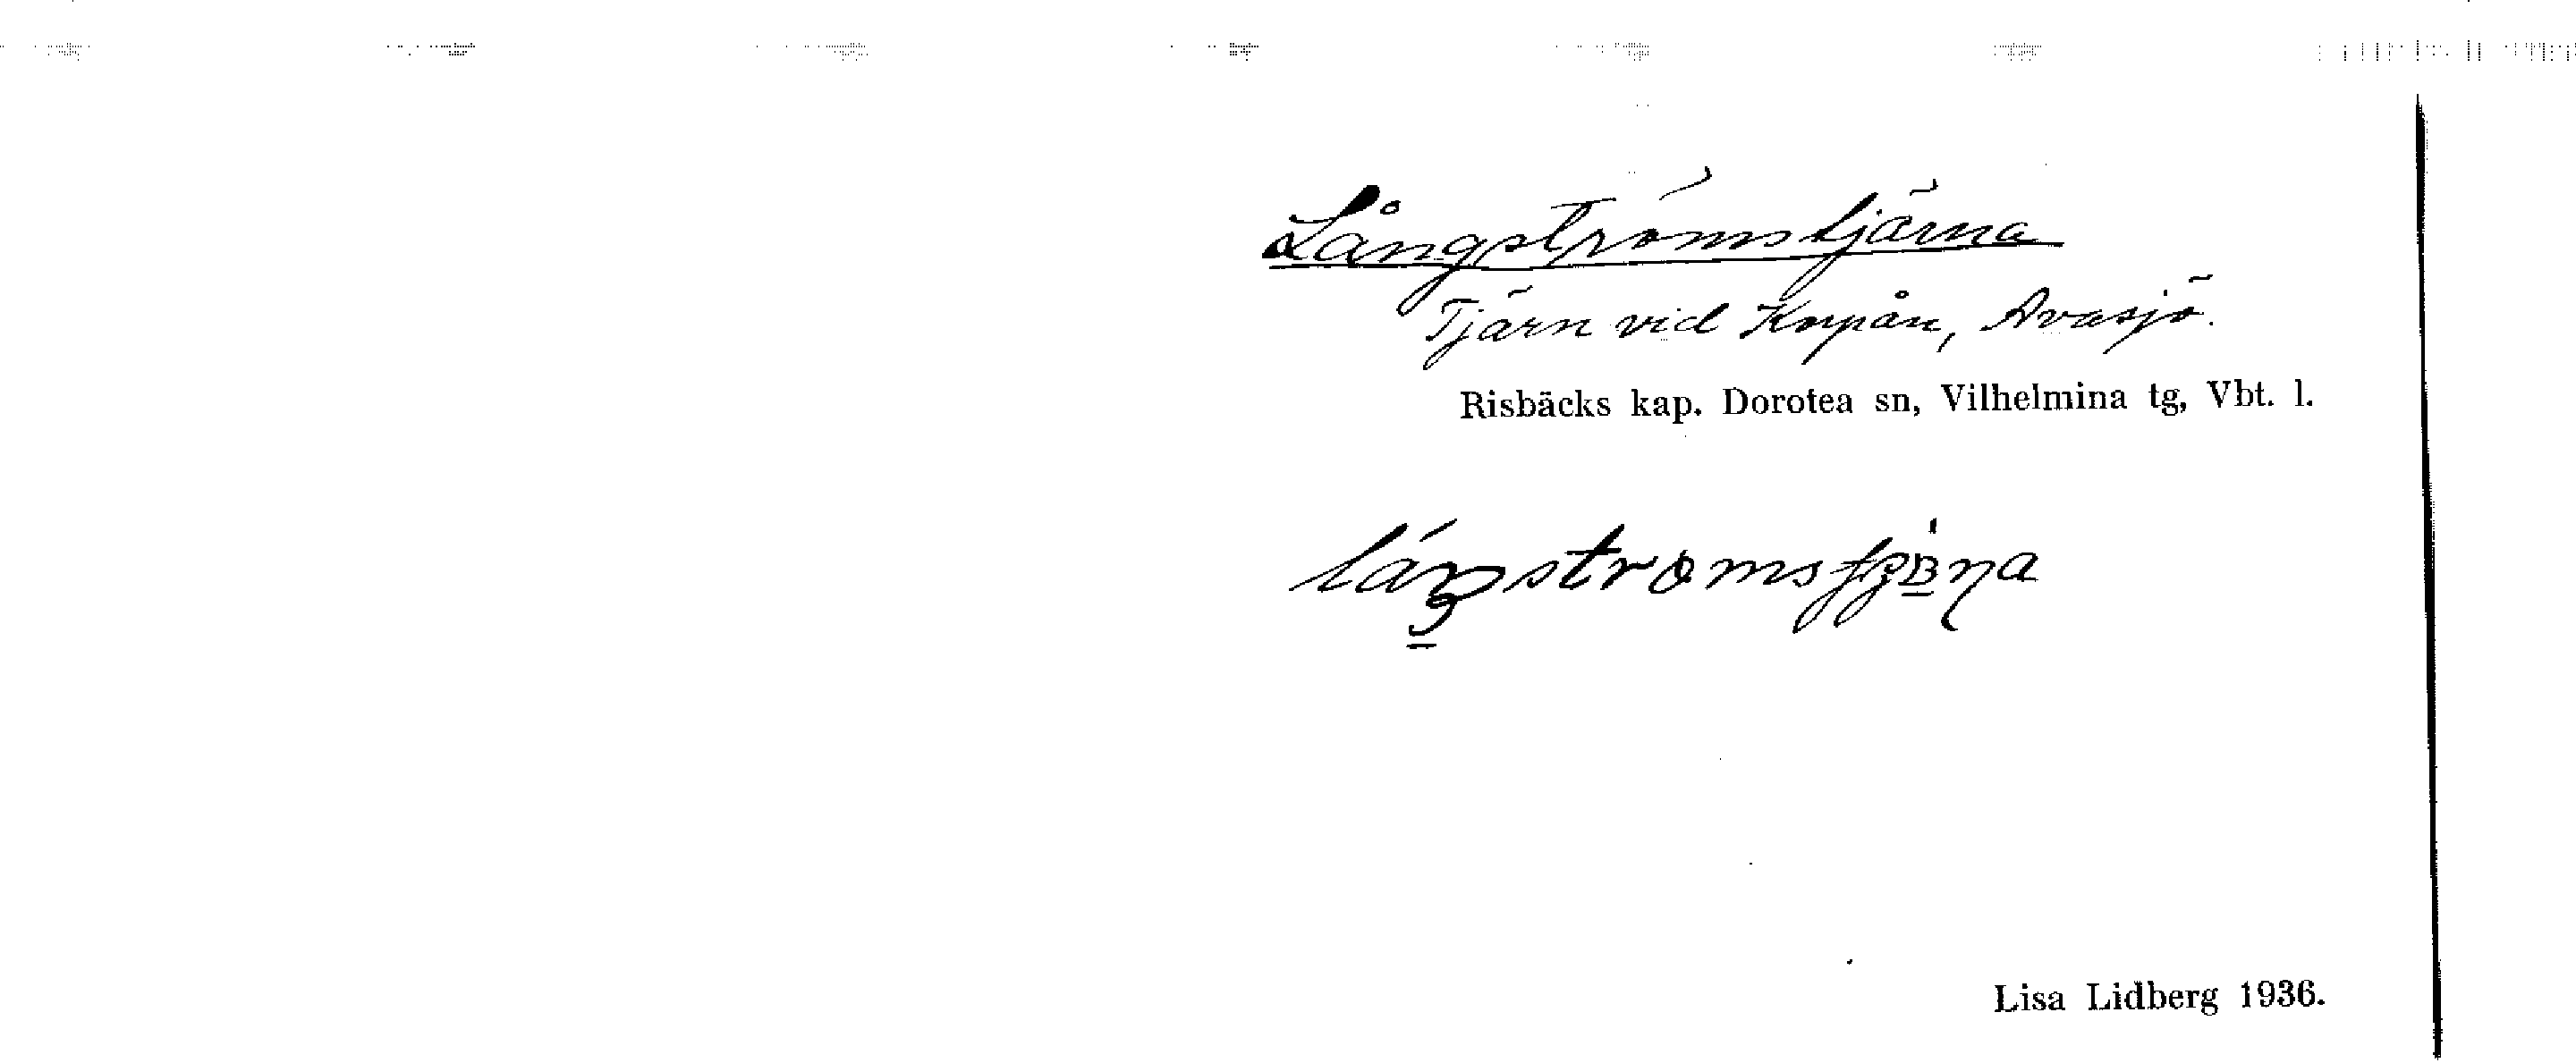 Långströmstjärna
Tjärn vid Korpån, Avasjö.
Risbäcks kap. Dorotea sn, Vilhelmina tg, Vbt. l.
Lisa Lidberg 1936.